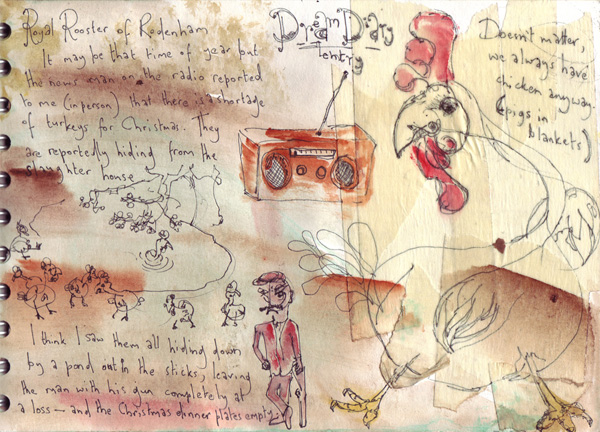 Royal Rooster of Rodenham
It may be that time of year but
the news man on the radio reported
to me (in person) that there is a shortage
of turkeys for Christmas. They
are reportedly hiding from the
slaughter house
Dream Diary
entry
Doesn't matter,
we always have
chicken anyway.
(pigs in
blankets)
I think I saw them all hiding down
by a pond out in the sticks, leaving
the man with his gun completely at
a loss — and the Christmas dinner plates empty.